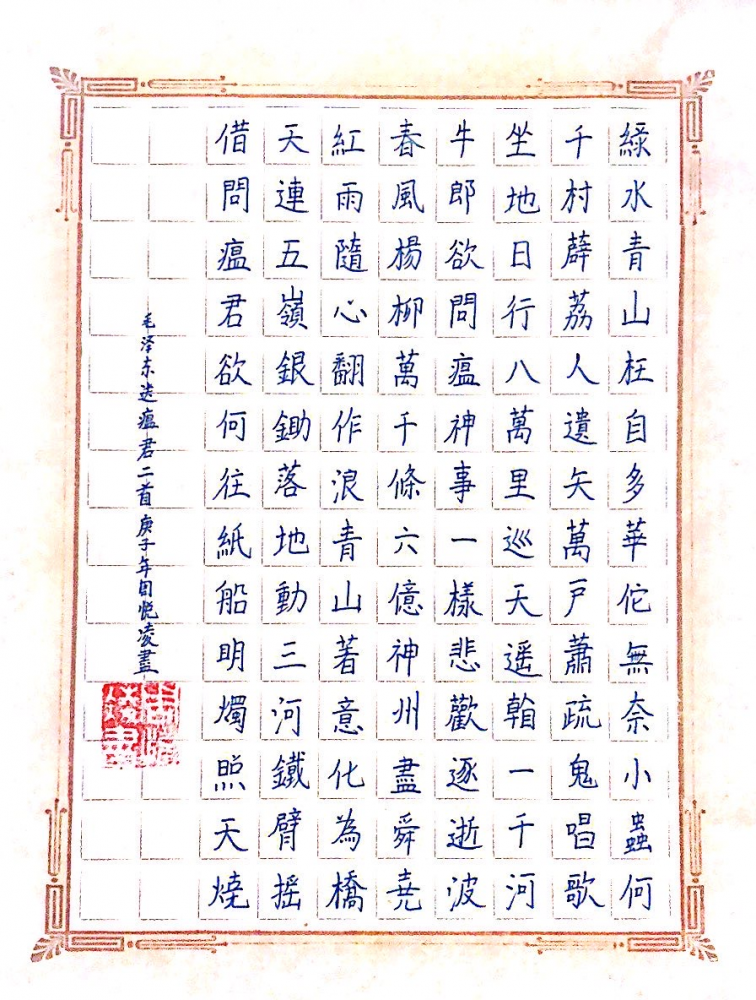 綠水青山枉自多華佗無奈小蟲何
千村薜荔人遺矢萬戶蕭疏鬼唱歌
坐地日行八萬里巡天遥看一千河
牛郎欲問瘟神事一樣悲歡逐逝波
春風楊柳萬千條六億神州盡舜堯
紅雨隨心翻作浪青山著意化為橋
天連五嶺銀鋤落地動三河鐵臂摇
借問瘟君欲何往紙船明燭照天燒
毛泽东送瘟君二首庚子年周悦凌書